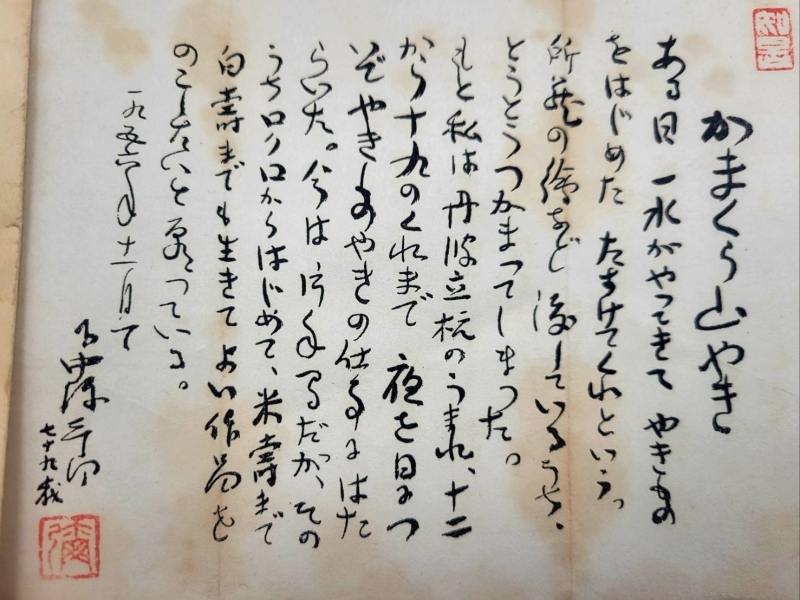 かまくら山やき
ある日一水がやってきて やきもの
をはじめた たすけてくれという。
所蔵の繪など 渡しているうち、
とうとうつかまってしまった。
もと私は丹波立杭のうまれ、十二
から十九のくれまで 夜を日につ
いでやきものやきの仕事にはた
らいた。今は片手間だが、その
うちロクロからはじめて、米壽まで
白壽までも生きてよい作品を
のこしたいと っている。
一九五六年十一月
七十九歳
彌